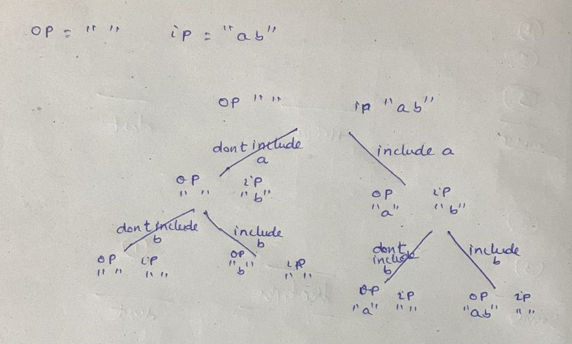 OP = " " ip = "ab"
OP " " ip "ab"
dont include a include a
OP ip OP ip
" " "b" "a" "b"
dont include b include b dont include b include b
OP ip OP ip OP ip OP ip
" " " " "b" " " "a" " " "ab" " "